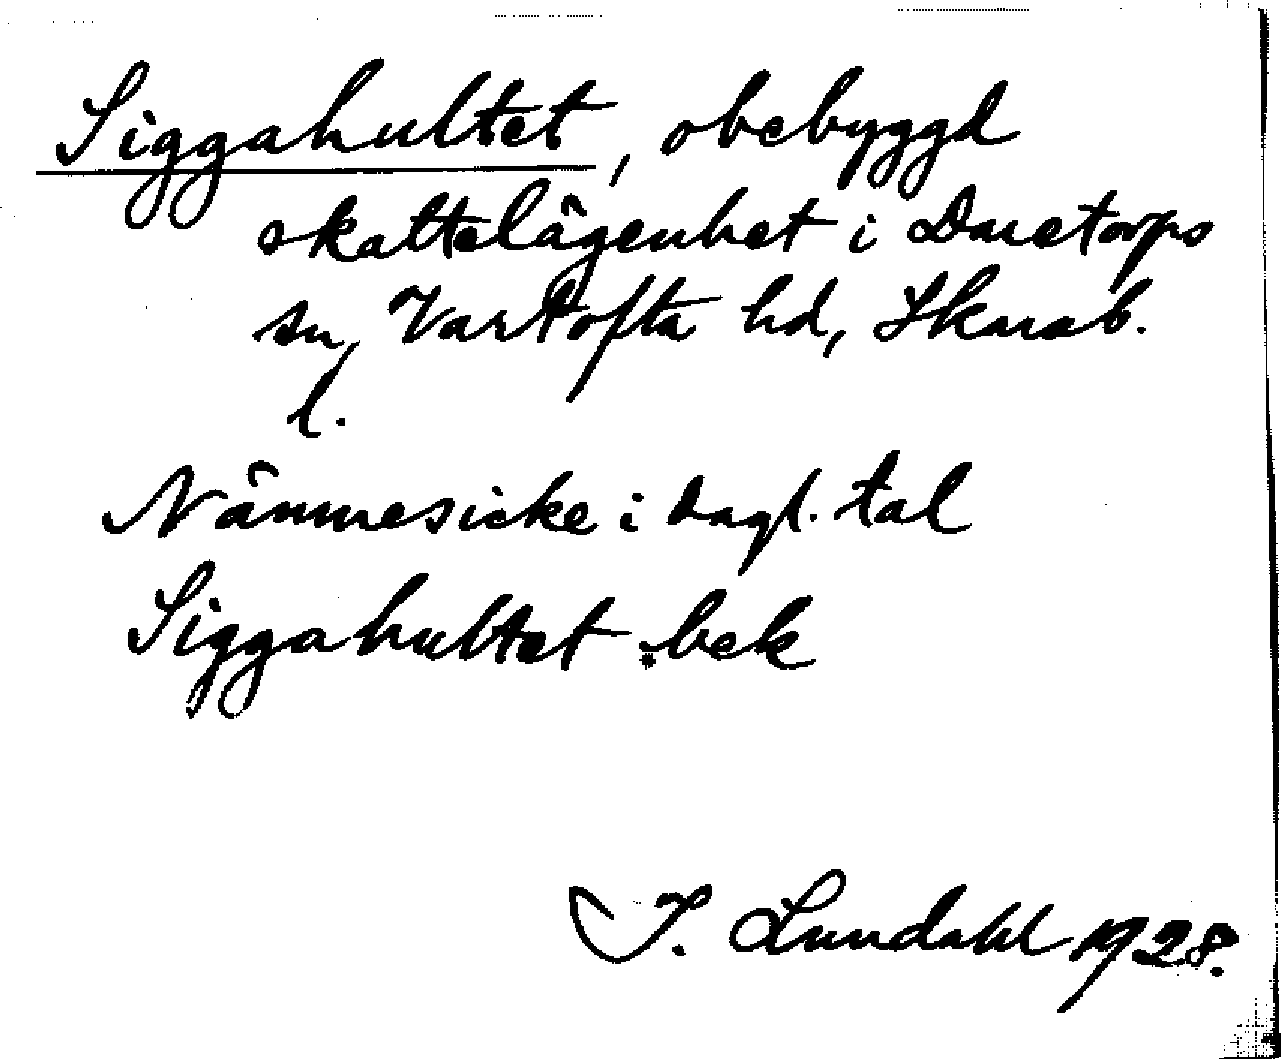 Siggahultet, obebyggd
skattelägenhet i Daretorps
sn, Vartofta hd, Skarab.
l.
Nämnes icke i dagl. tal
Siggahultet :bek
I. Lundahl 1928.